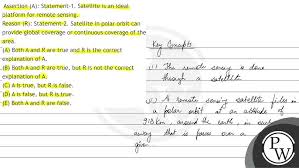 Assertion (A): Statement-1. Satellite is an ideal
platform for remote sensing.
Reason (R): Statement-2. Satellite in polar orbit can
provide global coverage or continuous coverage of the
area.
(A) Both A and R are true and R is the correct
explanation of A.
(B) Both A and R are true, but R is not the correct
explanation of A.
(C) A is true, but R is false.
(D) A is false, but R is true.
(E) Both A and R are false.
PW
Key Concepts
(i) The remote sensing is done
through a satellite.
(ii) A remote sensing satellite flies in
a polar orbit at an altitude of
918 km, around the earth in such
away that it passes over a
given
PW